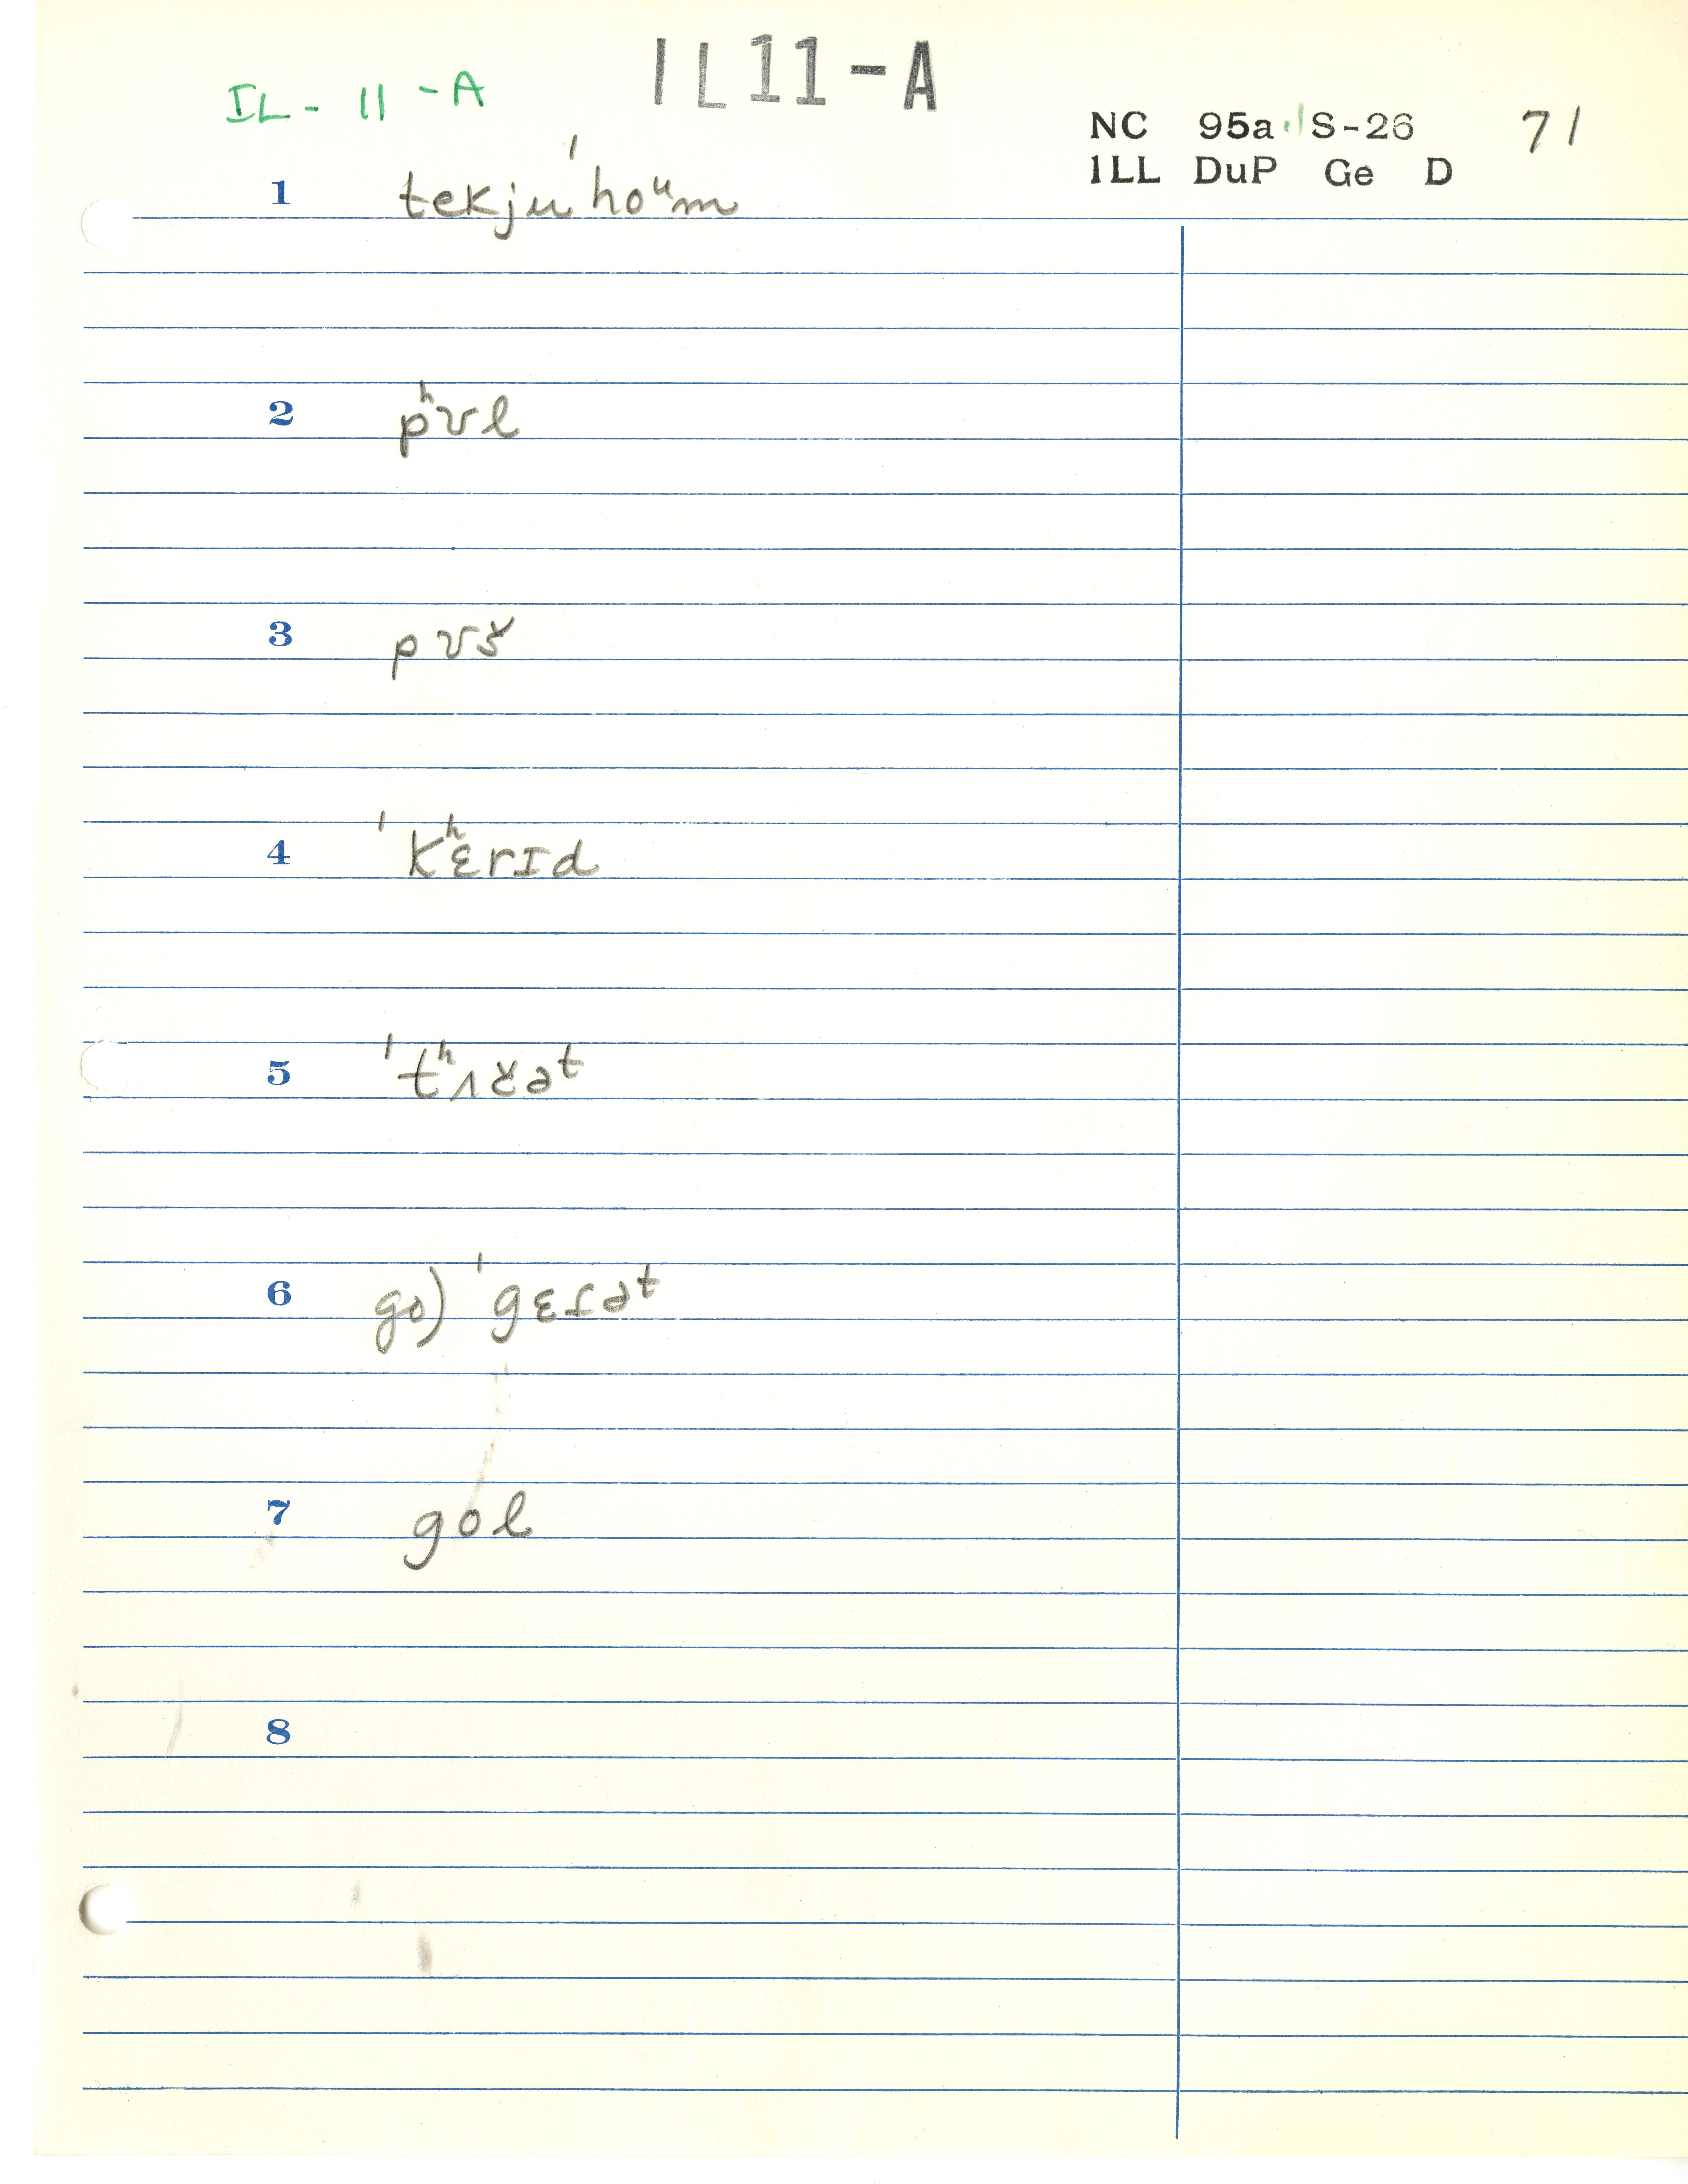 IL11-A
IL-11-A
NC 95a S-26 71
ILL DuP Ge D
1 tekju ˈhoᵘm
2 pʰʊl
3 pʊš
4 ˈkʰɛrɪd
5 ˈtʰʌɚət
6 go) ˈgɛɾət
7 gol
8